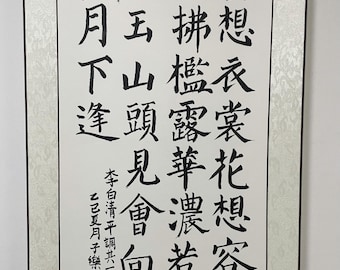 想衣裳花想容
拂檻露華濃若
玉山頭見會向
月下逢
李白清平調其一
乙巳夏月子樂